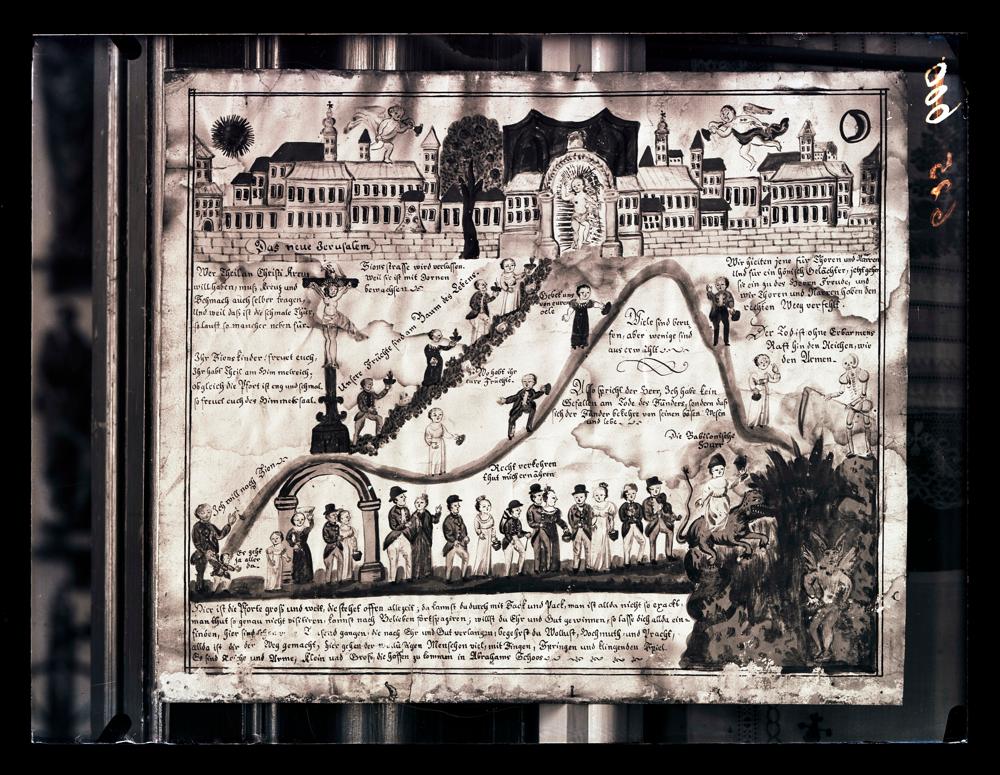 Das neue Jerusalem
Wer Theil an Christi Kreuz
will haben, muß Kreuz und
Schmach auch selber tragen,
Und weil das ist die schmale Thür,
so lauft so mancher neben für.
Ihr Zionskinder freuet euch,
Ihr habt Theil am Himmelreich,
obgleich die Pfort ist eng und schmal,
so freuet euch des Himmelssaal.
Zionsstrasse wird verlassen,
Weil sie ist mit Dornen
bewachsen
Unsere Früchte sind am Baum des Lebens.
Wo habt ihr
eure Früchte.
Gebet uns
von eurem
oele
Viele sind beru
fen, aber wenige sind
auserwählt
Wir hielten jene für Thoren und Narren
Und für ein hönisch Gelächter; jetzt gehn
sie ein zu des Herrn Freude, und
wir Thoren und Narren haben den
rechten Weg verfehlt.
Der Tod ist ohne Erbarmens
Raft hin den Reichen, wie
den Armen.
Also spricht der Herr, Ich habe kein
Gefallen am Tode des Sünders, sondern daß
sich der Sünder bekehre von seinen bösen Wesen
und lebe.
Die Babilonische
Hurr
Recht verkehren
thut mich ernähren
Ich will nach Zion
Er geht
ja aller
da.
Hier ist die Pforte groß und weit, die stehet offen allezeit; da kannst du durch mit Sack und Pack, man ist allda nicht so exact.
man thut so genau nicht visitiren, kannst nach Belieben fortspaziren; willst du Ehr und Gut gewinnen, so lasse dich allda ein-
finden, hier sind Tausend gangen, die nach Ehr und Gut verlangen; begehrst du Wollust, Hochmuth und Pracht,
allda ist dir der Weg gemacht, hier gehen der Menschen viel, mit Singen, Springen und klingenden Spiel.
Es sind Reiche und Arme, Klein und Groß, die hoffen zu kommen in Abrahams Schoos